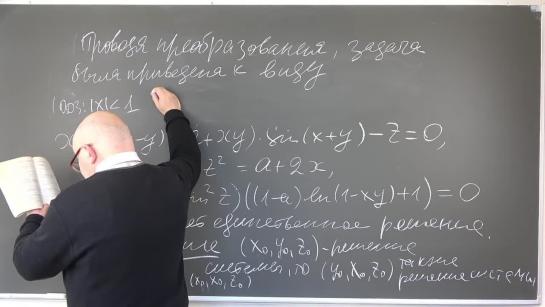 Проводя преобразования, задача
была приведена к виду
ОДЗ: |x|<1
-y) +xy)·sin(x+y)-z=0,
z²=a+2x,
sin²z)((1-a)ln(1-xy)+1)=0
ет единственное решение.
(x₀,y₀,z₀)-решение
системы, то (y₀,x₀,z₀) также решение системы
(x₀,x₀,z₀)